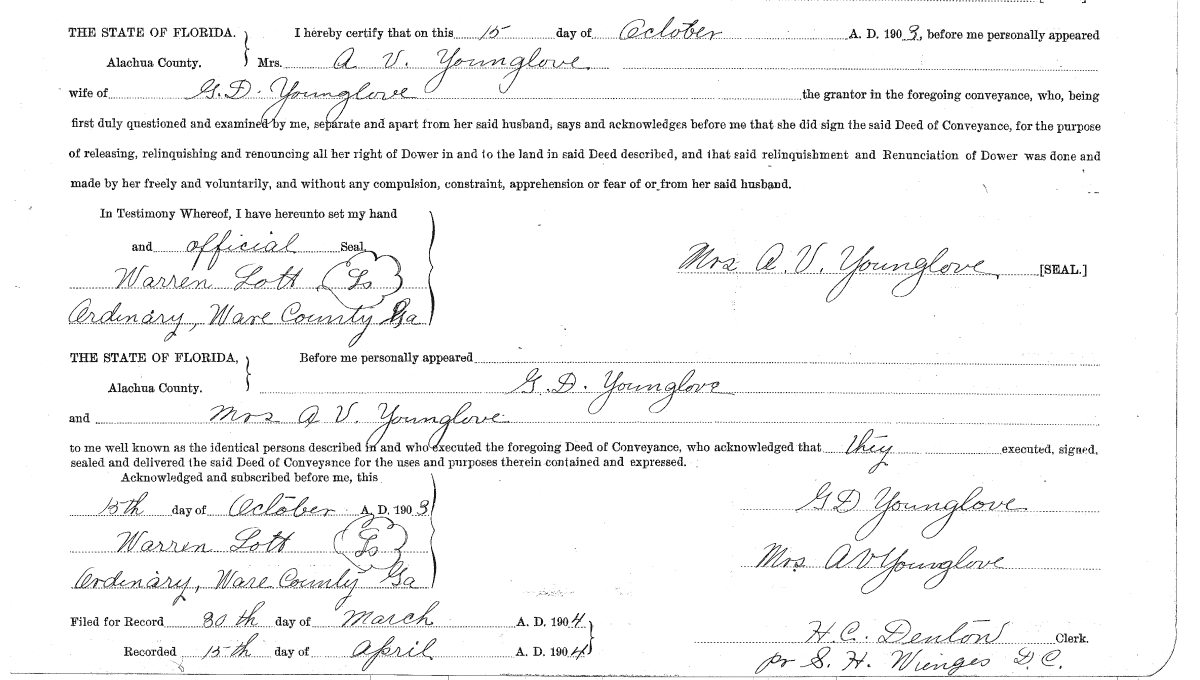 THE STATE OF FLORIDA. I hereby certify that on this 15 day of October A. D. 1903, before me personally appeared
Alachua County. Mrs. A V. Younglove
wife of G. D. Younglove the grantor in the foregoing conveyance, who, being
first duly questioned and examined by me, separate and apart from her said husband, says and acknowledges before me that she did sign the said Deed of Conveyance, for the purpose
of releasing, relinquishing and renouncing all her right of Dower in and to the land in said Deed described, and that said relinquishment and Renunciation of Dower was done and
made by her freely and voluntarily, and without any compulsion, constraint, apprehension or fear of or from her said husband.
In Testimony Whereof, I have hereunto set my hand
and official Seal.
Mrs A. V. Younglove [SEAL.]
Warren Lott Ls
Ordinary, Ware County Ga
THE STATE OF FLORIDA, Before me personally appeared
Alachua County. G. D. Younglove
and Mrs A V. Younglove
to me well known as the identical persons described in and who executed the foregoing Deed of Conveyance, who acknowledged that they executed, signed,
sealed and delivered the said Deed of Conveyance for the uses and purposes therein contained and expressed.
Acknowledged and subscribed before me, this
15th day of October A. D. 1903 G D Younglove
Warren Lott Ls
Mrs. A V Younglove
Ordinary, Ware County Ga
Filed for Record 30th day of March A. D. 1904
H. C. Denton Clerk.
Recorded 15th day of April A. D. 1904
pr S. H. Wienges D. C.